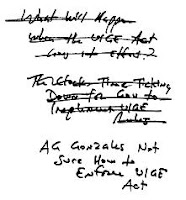 What Will Happen
When the UIGE Act
Goes into Effect?
The Clocks Time Ticking
Down for Gov to
Implement UIGE
Rules
AG Gonzales Not
Sure How to
Enforce UIGE
Act